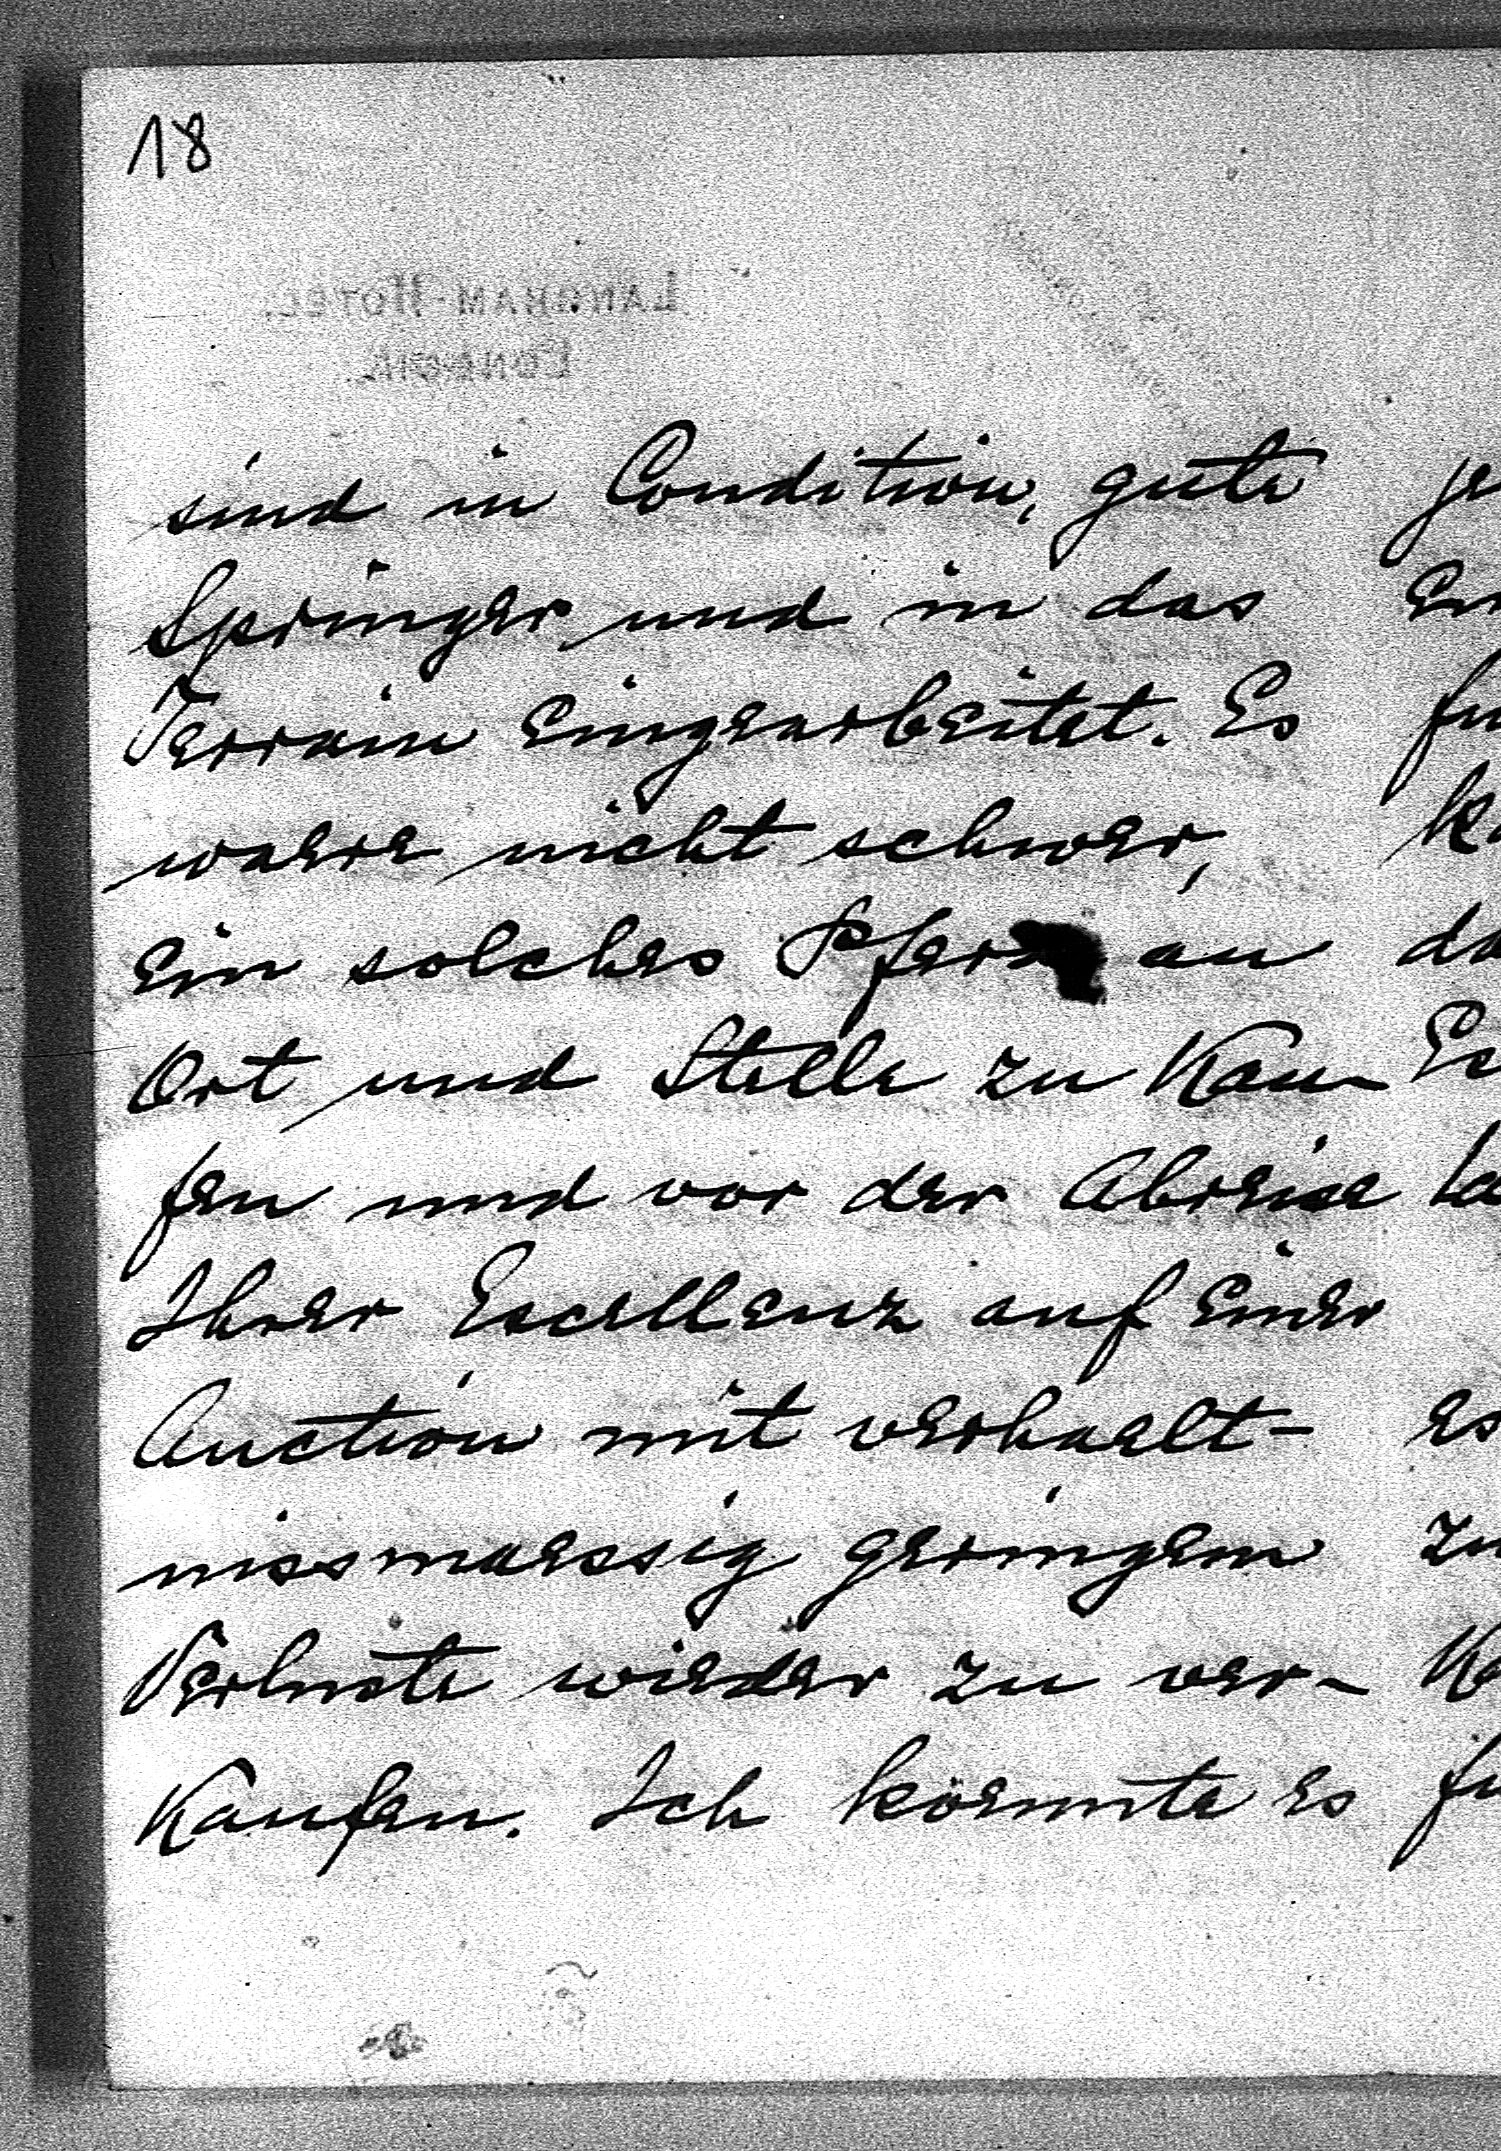 18
LANGHAM-HOTEL.
LONDON.
sind in Condition, gute
Springer und in das
Terrain eingearbeitet. Es
waere nicht schwer,
ein solches Pferd an
Ort und Stelle zu Kau-
fen und vor der Abreise
Ihrer Excellenz auf einer
Auction mit verhaelt-
nissmaessig geringem
Verluste wieder zu ver-
Kaufen. Ich köennte es